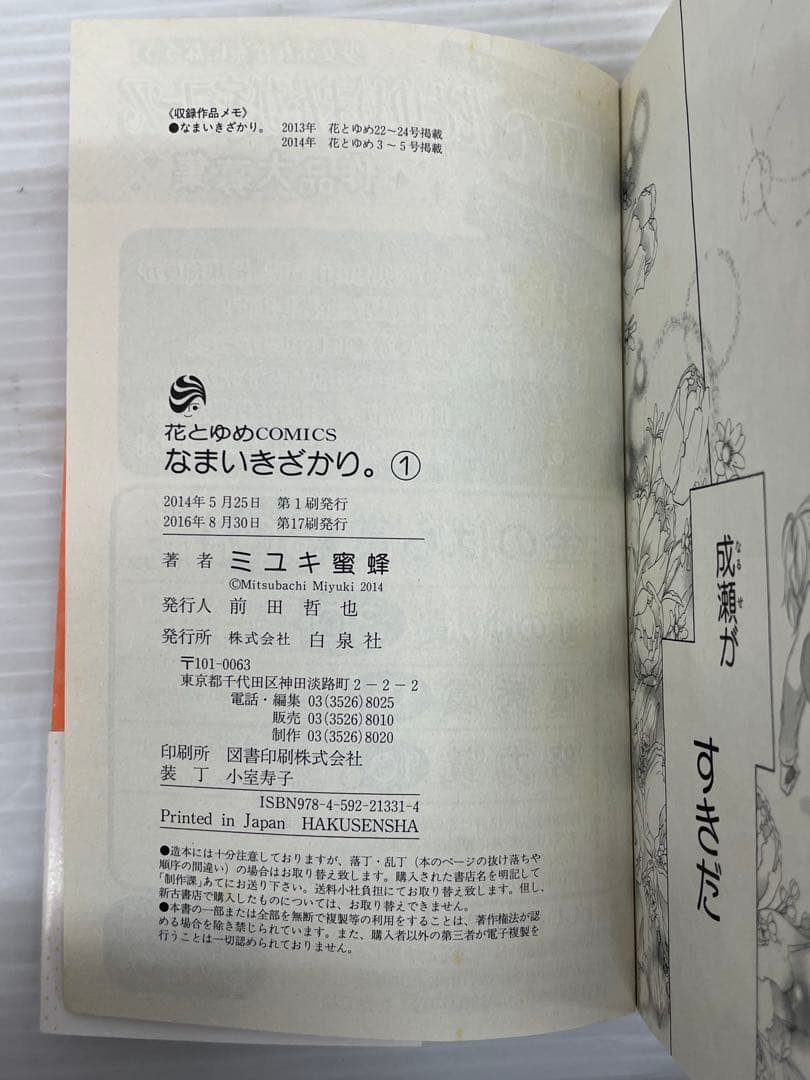 《収録作品メモ》
●なまいきざかり。 2013年 花とゆめ22〜24号掲載
2014年 花とゆめ3〜5号掲載
花とゆめCOMICS
なまいきざかり。①
2014年5月25日 第1刷発行
2016年8月30日 第17刷発行
著者 ミユキ蜜蜂
©Mitsubachi Miyuki 2014
発行人 前田哲也
発行所 株式会社 白泉社
〒101-0063
東京都千代田区神田淡路町2-2-2
電話・編集 03(3526)8025
販売 03(3526)8010
制作 03(3526)8020
印刷所 図書印刷株式会社
装丁 小室寿子
ISBN978-4-592-21331-4
Printed in Japan HAKUSENSHA
●造本には十分注意しておりますが、落丁・乱丁(本のページの抜け落ちや
順序の間違い)の場合はお取り替え致します。購入された書店名を明記して
「制作課」あてにお送り下さい。送料小社負担にてお取り替え致します。但し、
新古書店で購入したものについては、お取り替えできません。
●本書の一部または全部を無断で複製等の利用をすることは、著作権法が認
める場合を除き禁じられています。また、購入者以外の第三者が電子複製を
行うことは一切認められておりません。
成瀬が
なるせ
すきだ